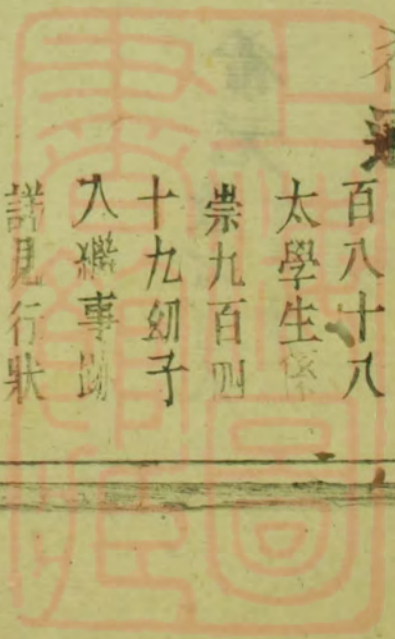 百八十八
太學生係
崇九百四
十九幼子
入繼事跡
詳見行狀